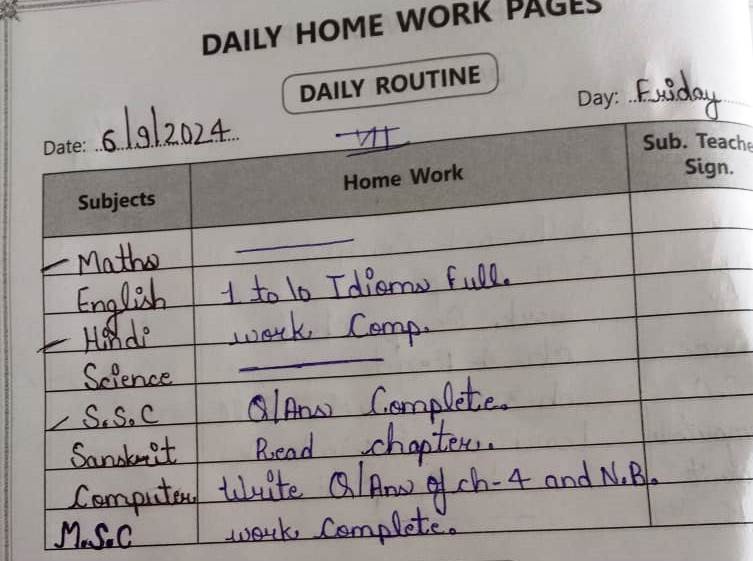 DAILY HOME WORK PAGES
DAILY ROUTINE
Date: 6/9/2024 Day: Friday
VII
Subjects Home Work Sub. Teache Sign.
Maths
English 1 to 10 Idioms full.
Hindi work Comp.
Science
S.S.C Q/Ans Complete.
Sanskrit Read chapter.
Computer Write Q/Ans of ch-4 and N.B.
M.S.C work complete.